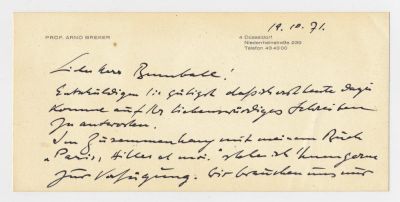 19.10.71.
PROF. ARNO BREKER
4 Düsseldorf
Niederrheinstraße 239
Telefon 43 43 00
Lieber Herr
Entschuldigen Sie gütigst daß ich erst heute dazu
komme auf Ihr liebenswürdiges Schreiben
zu antworten.
Im Zusammenhang mit meinem Buch
„Paris, Hitler et moi." stehe ich Ihnen gerne
zur Verfügung. Wir brauchen uns nur